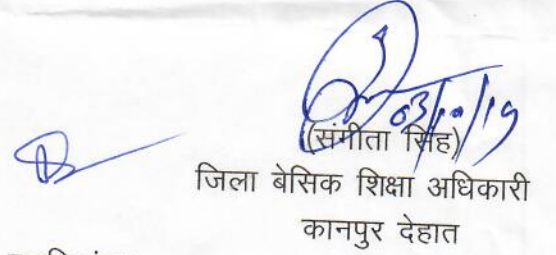 03/10/19
(संगीता सिंह)
जिला बेसिक शिक्षा अधिकारी
कानपुर देहात